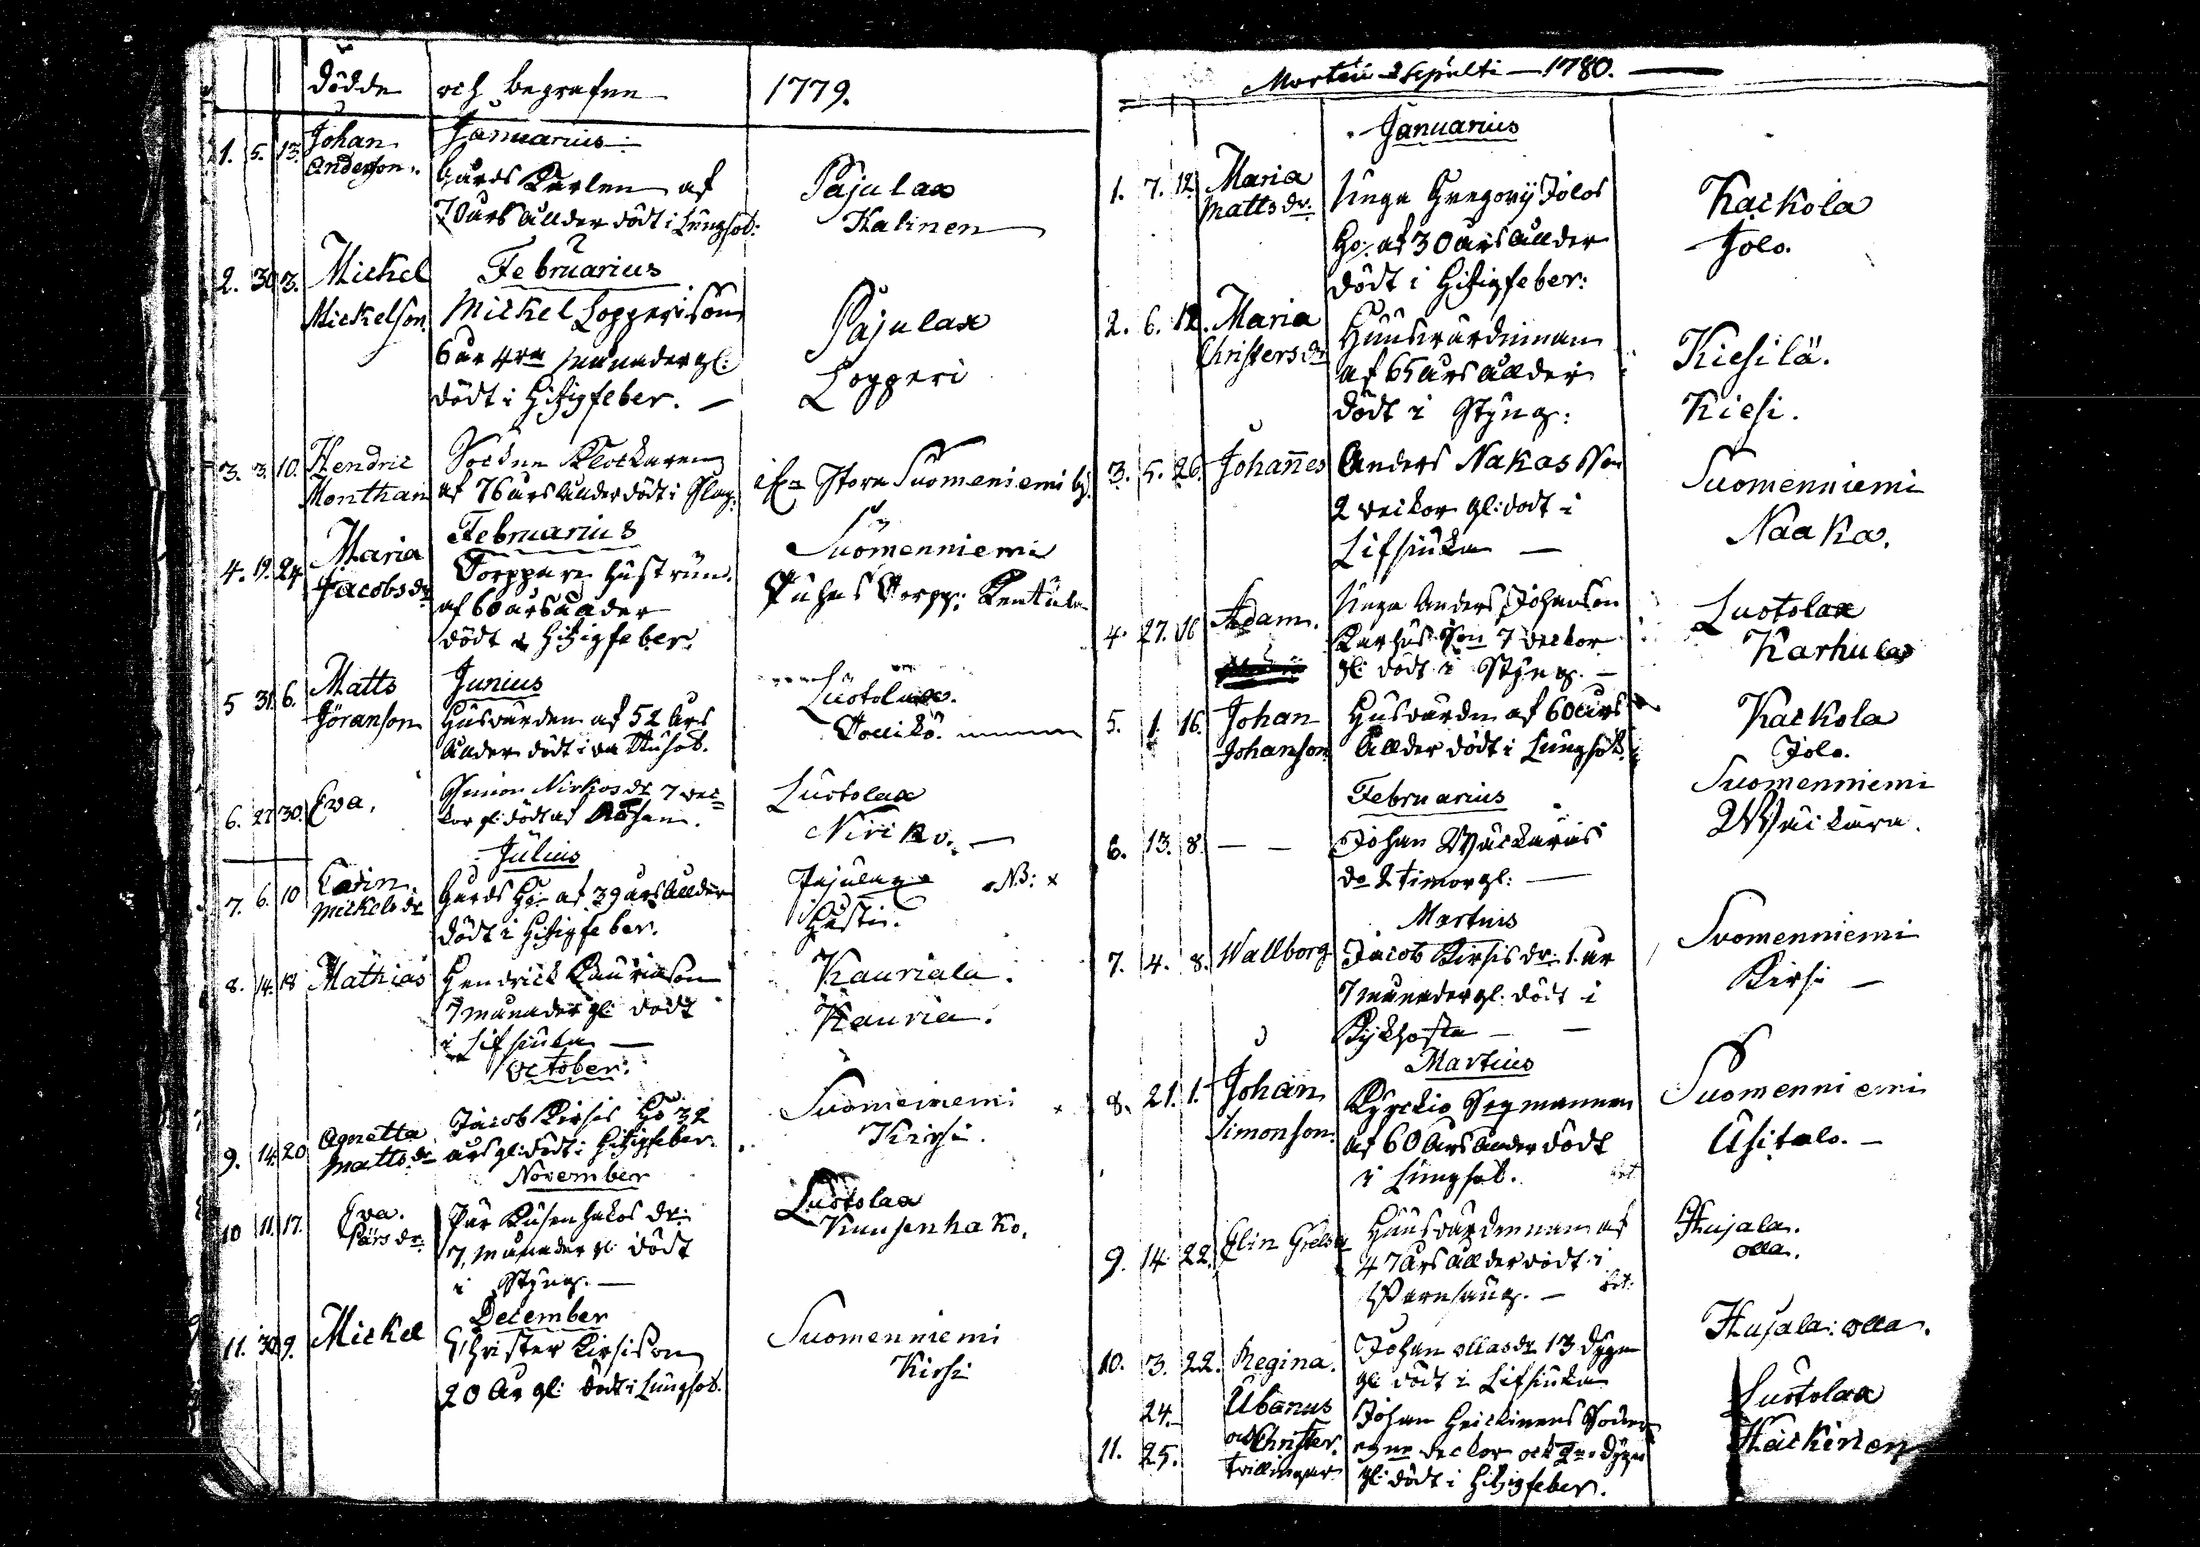 dödde och begrafne 1779.
Januarius
1. 5. 13. Johan Anderson.
Gårds Karlen af
70 års ållder dödt i Lungsot.
Pajulax
Katinen
Februarius
2. 30. 3. Mickel
Mickelson
Mickel Lopperis son
6 år 4ra månader gl.
dödt i Hitzigfeber. —
Pajulax
Lopperi
3. 3. 10. Hendric
Monthan
Sockne Klockaren
af 76 års ållder dödt i Slag.
Stora Suomeniemi by.
Februarius
4. 19. 24 Maria
Jacobs dr
Torppare Hustrun
af 60 års ållder
dödt i Hitzigfeber.
Suomenniemi
Torpp:
Junius
5 31. 6. Matts
Jöranson
Husvärden af 52 års
ållder dödt i
Lustolax.
6. 27. 30. Eva.
Simon Nirkos dr 7 vec=
kor gl: dödt af
Lustolax
Niriko. —
Julius
7. 6. 10 Carin
Mickels dr
Gårds Ho af 39 års ållder
dödt i Hitzigfeber.
Pajulax NB: x
Husti.
8. 14. 18 Mathias
Hendrick Kaurias son
7 månader gl. dödt
i Lifsiuka —
Kauriala.
Kauria.
October:
9. 14. 20 Agnetta
Matts dr
Jacob Kirsis Ho 32
års gl: dödt i Hitzigfeber.
Suomeniemi
Kirsi.
November
10 11. 17. Eva.
Pärs dr
Pär Kusenhakos dr:
7. månader gl. dödt
i Styng. —
Lustolax
Kuusenhako.
December
11. 30. 9. Mickel
Christer Kirsis son
20 år gl: dödt i Lungsot.
Suomenniemi
Kirsi
Mortui & Sepulti — 1780. —
Januarius
1. 7. 12. Maria
Matts dr.
Unga Gregorij Jolos
Ho. af 30 års ållder
dödt i Hitzigfeber:
Kackola
Jolo.
2. 6. 12. Maria
Christers dr
Huusvärdinnan
af 65 års ållder
dödt i Styng:
Kiesilä.
Kiesi.
3. 5. 26. Johañes
Anders Nakas Son
2 veckor gl: dödt i
Lifsiuka —
Suomenniemi
Naaka.
4. 27. 16 Adam.
Unga Anders Johanson
Karhus Son 7 veckor
gl: dödt i Styng. —
Lustolax
Karhula
5. 1. 16. Johan
Johanson
Husvärden af 60 års
ållder dödt i Lungsot.
Kackola
Jolo.
Februarius
6. 13. 8. — —
Johan Wäckäräs
dr 2 timor gl: —
Suomenniemi
Wäckärä.
Martius
7. 4. 8. Wallborg
Jacob Kirsis dr: 1. år
7 månader gl. dödt i
Kykhosta — —
Suomenniemi
Kirsi —
Martius
8. 21. 1. Johan
Simonson.
Kyrckio Sexmannen
af 60 års ållder dödt
i Lungsot.
Suomenniemi
Usitalo. —
9. 14. 22. Elin
Huusvärdinnan af
47 års ållder dödt i
Hujala.
olla.
10. 3. 22. Regina.
Johan ollas dr 13 dygn
gl: dödt i Lifsiuka
Hujala: olla.
24. Ubanus
11. 25. och Christer.
Tvillingar
Johan Heickinens Söner
veckor och dygn
gl: dödt i Hitzigfeber.
Lustolax
Häckinen